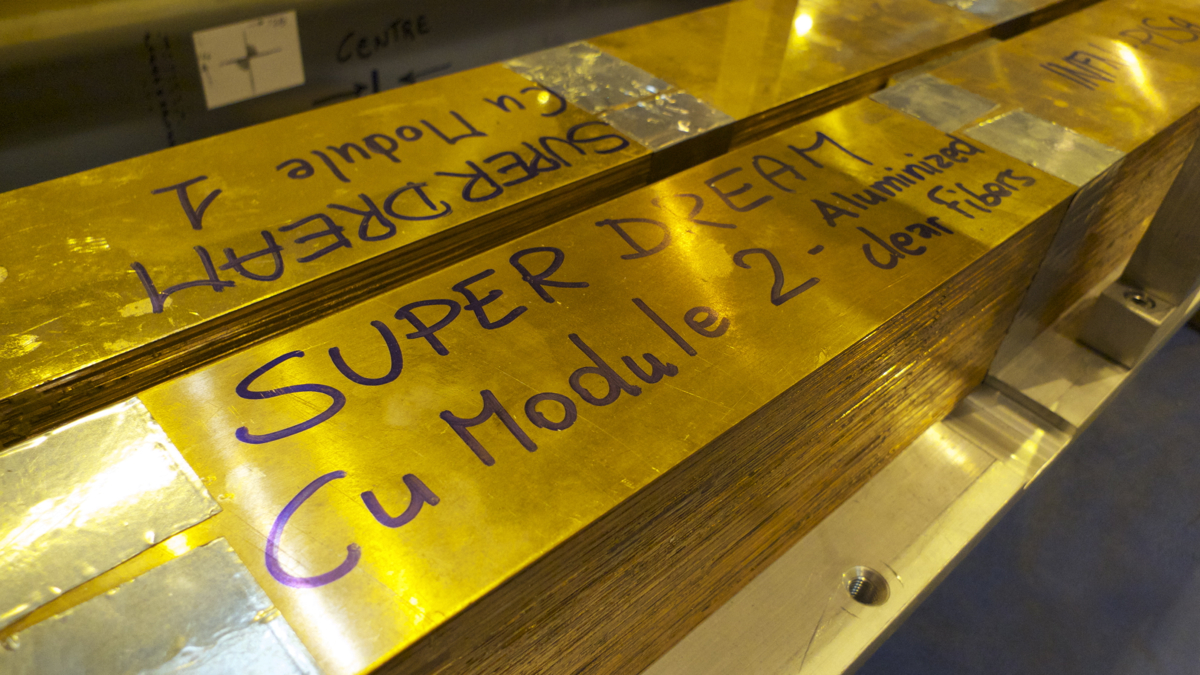 CENTRE
SUPER DREAM
Cu Module
1
SUPER DREAM
Cu Module 2 - Aluminized
clear Fibers
INFN PISA